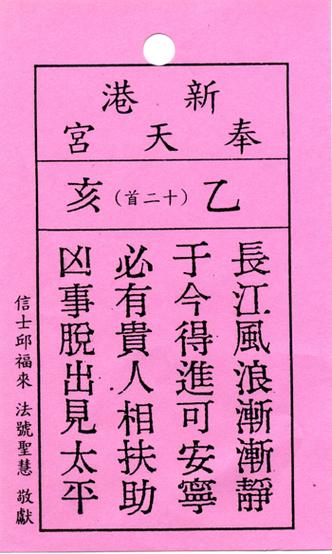 新港
奉天宮
乙（十二首）亥
長江風浪漸漸靜
于今得進可安寧
必有貴人相扶助
凶事脫出見太平
信士邱福來 法號聖慧 敬獻